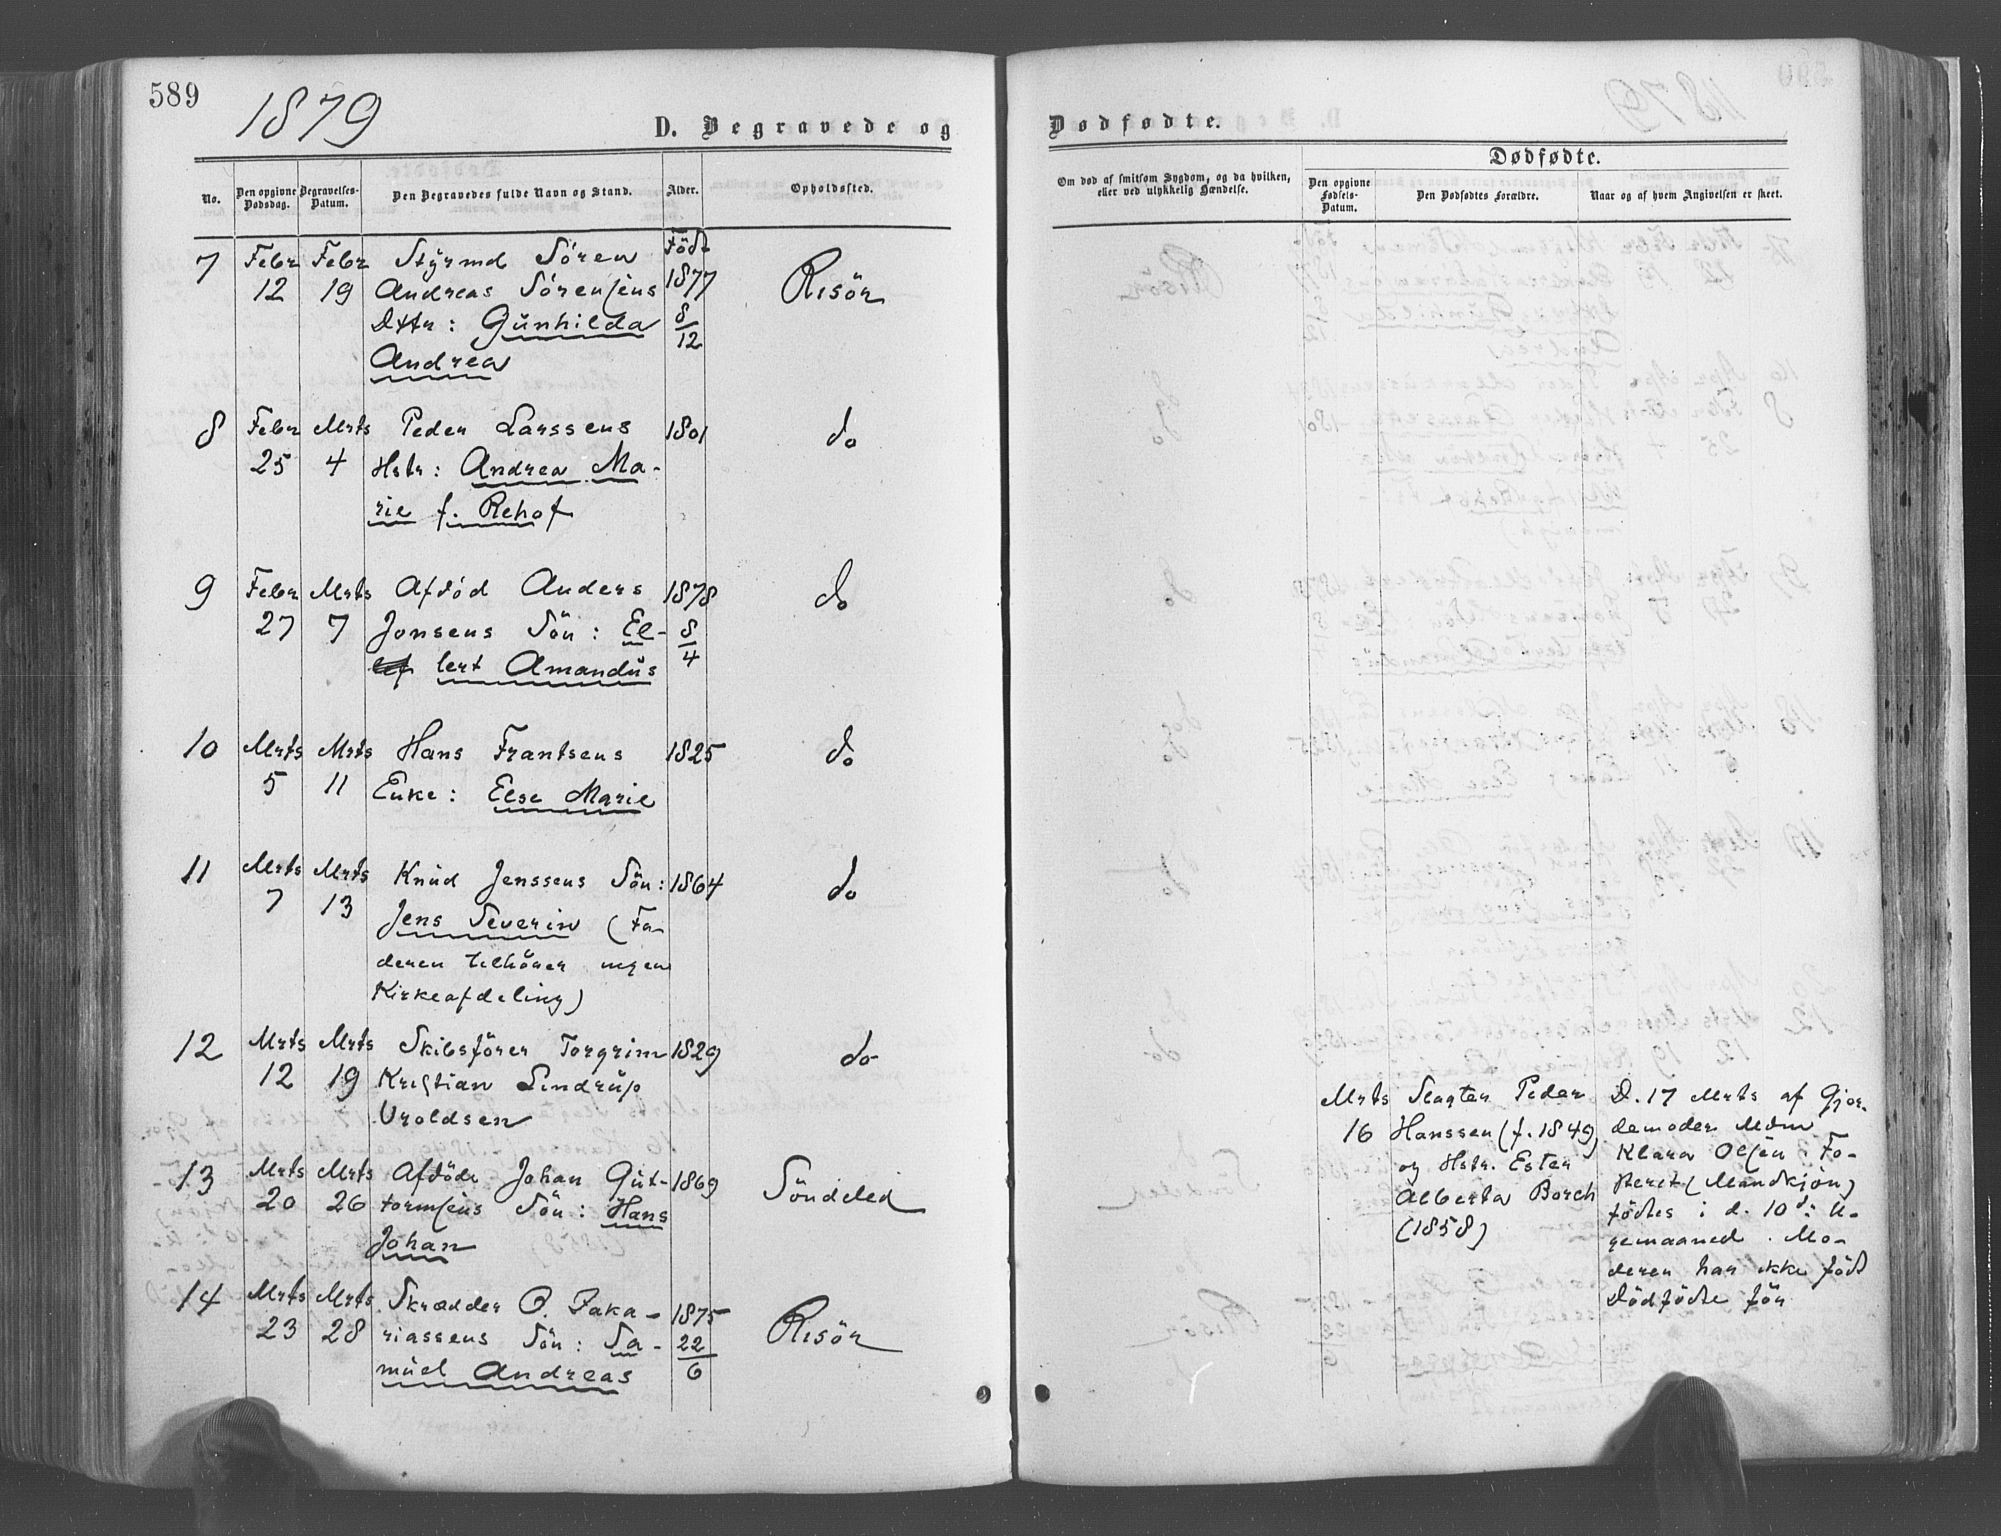 589
1879
D. Begravede og
No.
Den opgivne Dødsdag.
Begravelses-Datum.
Den Begravedes fulde Navn og Stand.
Alder.
Opholdssted.
7 Febr Febr Styrmd Sören Födt
12 19 Andreas Sörensens 1877 Risör
Dttr: Gunhilda 8/12
Andrea
8 Febr Mrts Peder Larssens 1801 do
25 4 Hstr: Andrea Ma-
rie f. Rehof
9 Febr Mrts Afdöd Anders 1878 do
27 7 Jonsens Sön: El- 8/4
lert Amandus
10 Mrts Mrts Hans Frantsens 1825 do
5 11 Enke: Else Marie
11 Mrts Mrts Knud Jenssens Sön: 1864 do
7 13 Jens Severin (Fa-
deren tilhörer ingen
Kirkeafdeling)
12 Mrts Mrts Skibsförer Torgrim 1829 do
12 19 Kristian Lindrup
Uroldsen
13 Mrts Mrts Afdöde Johan Gut- 1869 Söndeled
20 26 tormsens Sön: Hans
Johan
14 Mrts Mrts Skrædder P. Zaka- 1875
23 28 riassens Sön: Sa- 22/6 Risör
muel Andreas
Dødfødte.
Om død af smitsom Sygdom, og da hvilken,
eller ved ulykkelig Hændelse.
Dødfødte.
Den opgivne Fødsels-Datum.
Den Dødfødtes Forældre.
Naar og af hvem Angivelsen er skeet.
Mrts Slagter Peder D. 17 Mrts af Gjor-
16 Hanssen (f. 1849) demoder Mdm
og Hstr. Ester Klara Olsen. Fo-
Alberta Borch steret (Mandkjön)
(1858) födtes i d. 10d: U-
gemaaned. Mo-
deren har ikke födt
Dödfödte för